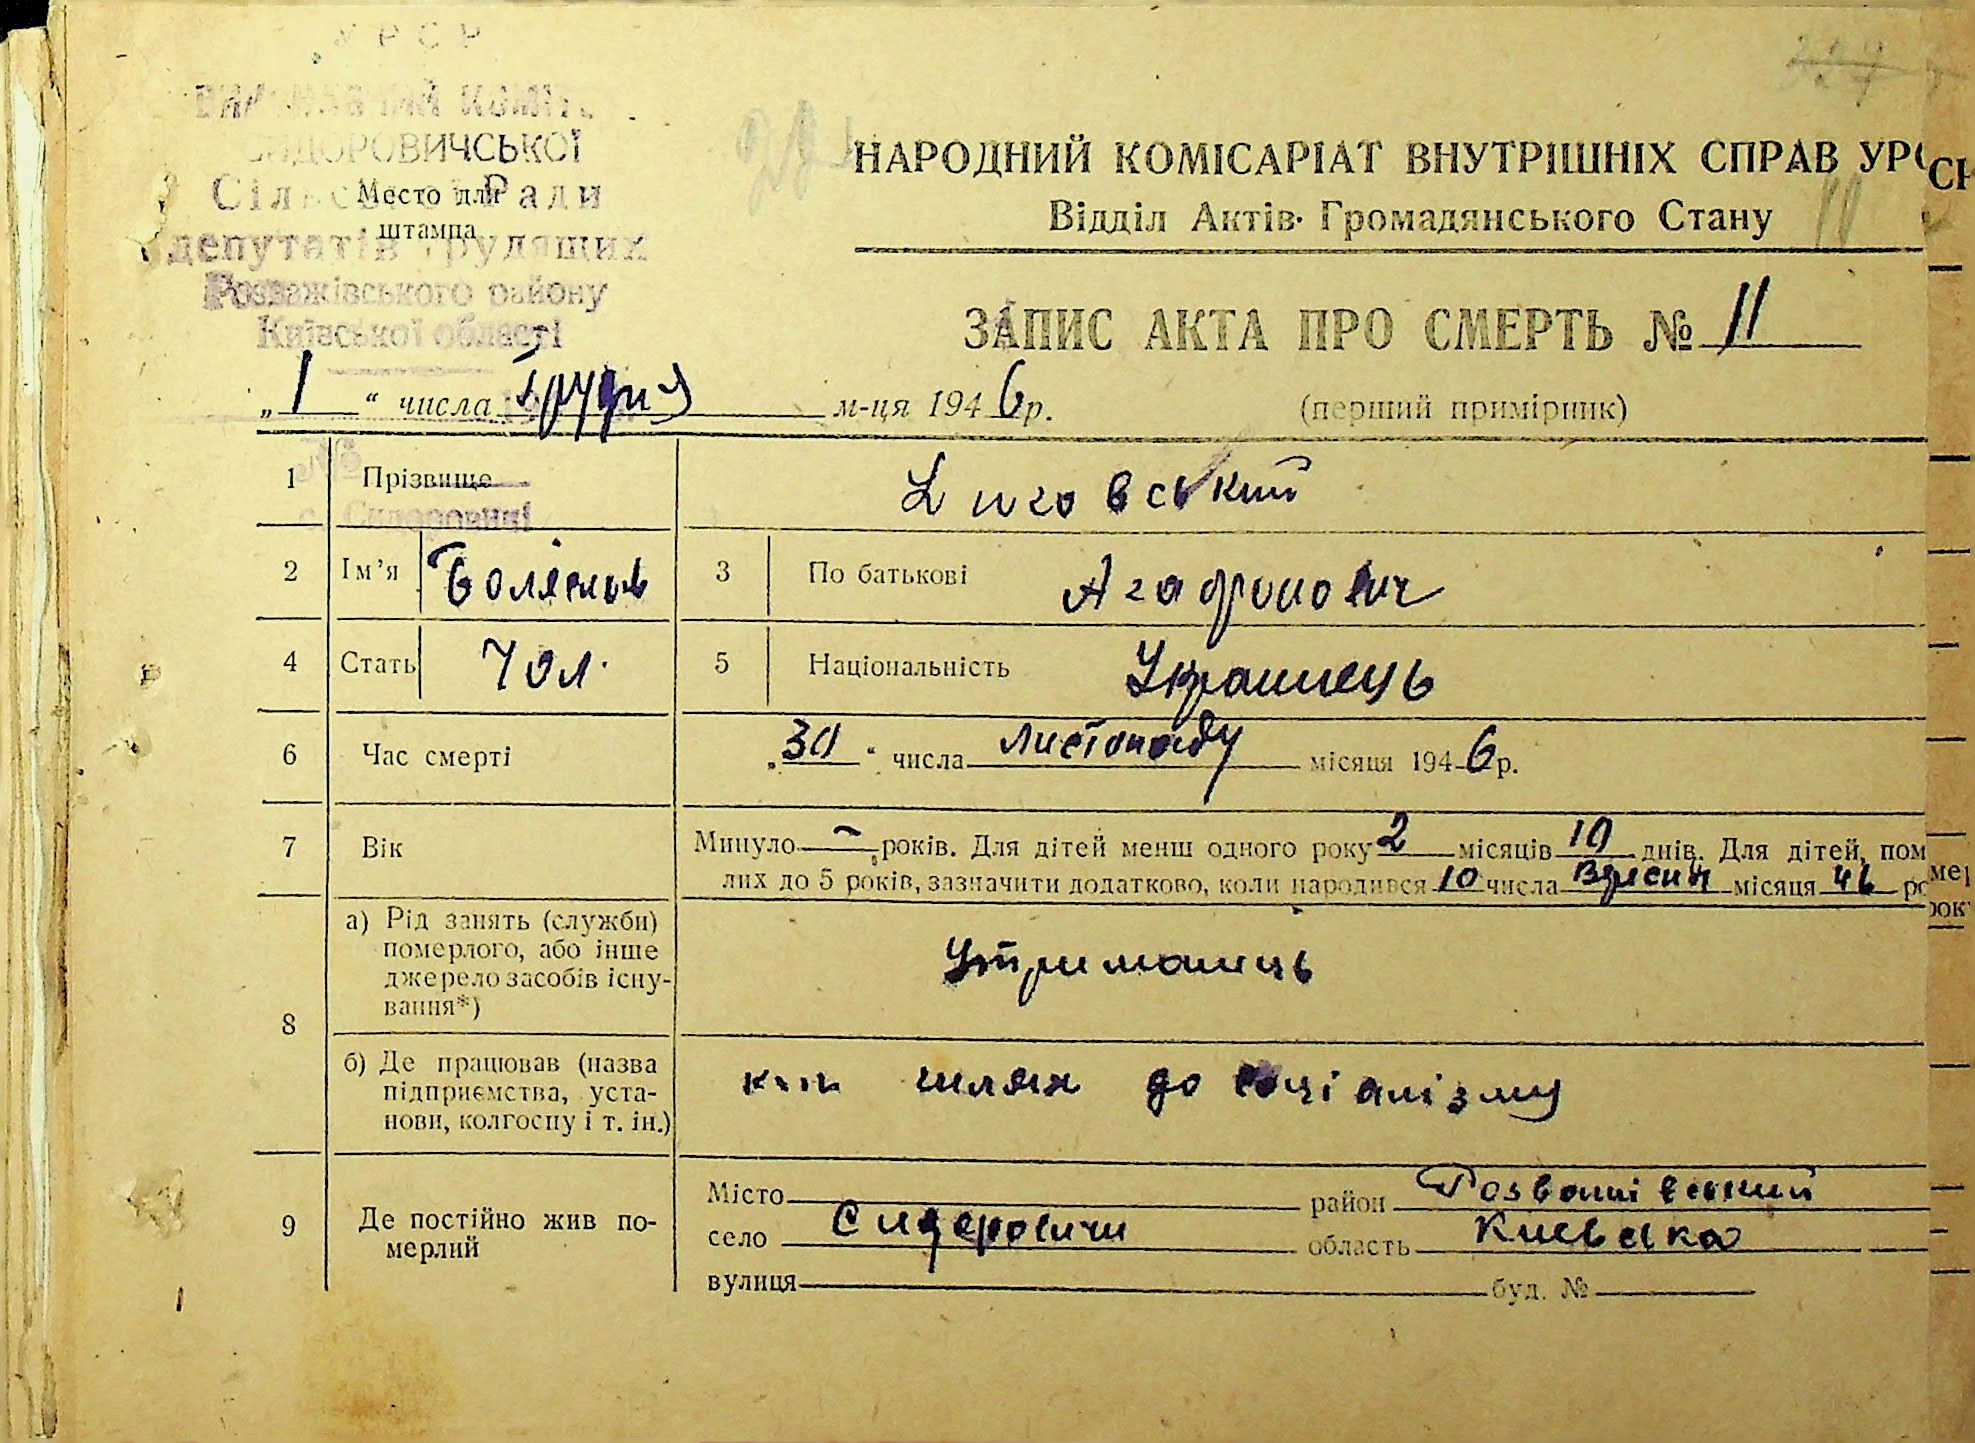 СИДОРОВИЧСЬКОЇ
Сільської Ради
Место для
штампа
депутатів трудящих
Розважівського району
Київської області
НАРОДНИЙ КОМІСАРІАТ ВНУТРІШНІХ СПРАВ УРС
Відділ Актів Громадянського Стану
11
ЗАПИС АКТА ПРО СМЕРТЬ № 11
„1“ числа Грудня м-ця 1946р.
(перший примірник)
1 Прізвище
с. Сидоровичі
2 Ім’я
3 По батькові
4 Стать Чол.
5 Національність Українець
6 Час смерті „30“ числа листопаду місяця 1946р.
7 Вік Минуло — років. Для дітей менш одного року 2 місяців 10 днів. Для дітей, пом
лих до 5 років, зазначити додатково, коли народився 10 числа Вресня місяця 46 ро
8 а) Рід занять (служби)
померлого, або інше
джерело засобів існу-
вання*)
Утриманець
б) Де працював (назва
підприємства, уста-
нови, колгоспу і т. ін.)
шлях до соціалізму
9 Де постійно жив по-
мерлий
Місто район
село Сидоровичи область Киевська
вулиця буд. №